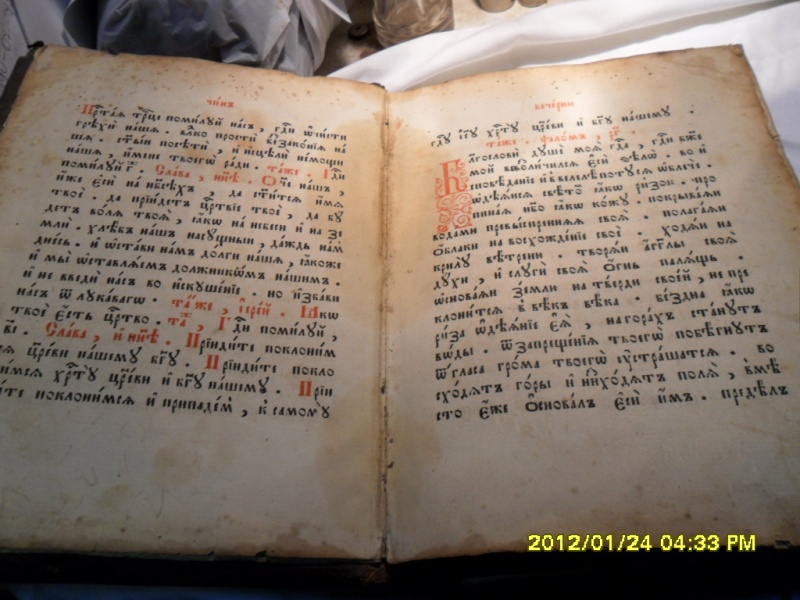 чи́нъ
Прⷭ҇таѧ трⷪ҇це поми́лꙋй на́съ, гдⷭ҇и ѡ҆чи́сти
грѣхѝ на́ша. влⷣко простѝ беззако́нїѧ на́
ша. ст҃ы́и посѣтѝ, и҆ и҆сцѣлѝ не́мощи
на́ша, и҆́мене твоегѡ̀ ра́ди. та́же. Гдⷭ҇и
поми́лꙋй г҃. Сла́ва, и҆ ны́нѣ. Ѻ҆́ч҃е на́шъ,
и҆́же є҆сѝ на нб҃сѣ́хъ, да ст҃и́тсѧ и҆́мѧ
твоѐ. да прїи́детъ црⷭ҇твїе твоѐ, да бꙋ́
детъ во́лѧ твоѧ̀, ꙗ҆́кѡ на небесѝ и҆ на зе
млѝ. хлѣ́бъ на́шъ насꙋ́щныи, да́ждь на́мъ
дне́сь. и҆ ѡ҆ста́ви на́мъ до́лги на́ша, ꙗ҆́коже
и҆ мы̀ ѡ҆ставлѧ́емъ должникѡ́мъ на́шимъ.
и҆ не введѝ на́съ во и҆скꙋше́нїе. но и҆зба́ви
на́съ ѿ лꙋка́вагѡ. та́же, і҆ере́й. Ꙗ҆́кѡ
твоѐ є҆́сть црⷭ҇тво. та́ж, Гдⷭ҇и поми́лꙋй,
в҃і. Сла́ва, и҆ ны́нѣ. Прїиди́те поклони́м
сѧ цр҃е́ви на́шемꙋ бг҃ꙋ. Прїиди́те покло
ни́мсѧ хрⷭ҇тꙋ̀ цр҃е́ви и҆ бг҃ꙋ на́шемꙋ. Прїи
ди́те поклони́мсѧ и҆ припаде́м, к самомꙋ̀
вече́рни
гдⷭ҇ꙋ і҆с҃ꙋ хрⷭ҇тꙋ̀ цр҃е́ви и҆ бг҃ꙋ на́шемꙋ.
та́же. ѱало́мъ, рг҃.
Благословѝ дꙋшѐ моѧ̀ гдⷭ҇а, гдⷭ҇и бж҃е
мо́й возвели́чилсѧ є҆сѝ ѕѣлѡ̀. во и҆
сповѣ́данїе и҆ в велелѣ́потꙋ сѧ ѡ҆блечѐ.
ѡ҆дѣ́ѧисѧ свѣ́томъ ꙗ҆́кѡ ри́зою. про
пина́ѧ нб҃о ꙗ҆́кѡ ко́жꙋ. покрыва́ѧи
вода́ми превы́спреннѧѧ своѧ̀. полага́ѧи
ѻ҆́блаки на восхожде́нїе своѐ. ходѧ́и на
крилꙋ̀ вѣ́треню. творѧ́и а҆́гг҃лы своѧ̀
дꙋ́хи, и҆ слꙋги́ своѧ̀ ѻ҆́гнь палѧ́щь.
ѡ҆снова́ѧи зе́млю на тве́рди свое́й, не пре
клони́тсѧ в вѣ́къ вѣ́ка. бе́здна ꙗ҆́кѡ
ри́за ѡ҆дѣѧ́нїе є҆ѧ̀, на гора́хъ ста́нꙋтъ
во́ды. ѿ запреще́нїѧ твоегѡ̀ побѣ́гнꙋтъ
ѿ гла́са гро́ма твоегѡ̀ ᲂу҆страша́тсѧ. во
схо́дѧтъ го́ры и҆ нисхо́дѧтъ полѧ̀, в мѣ́
сто є҆́же ѻ҆снова́лъ є҆сѝ и҆̀мъ. предѣ́лъ
2012/01/24 04:33 PM